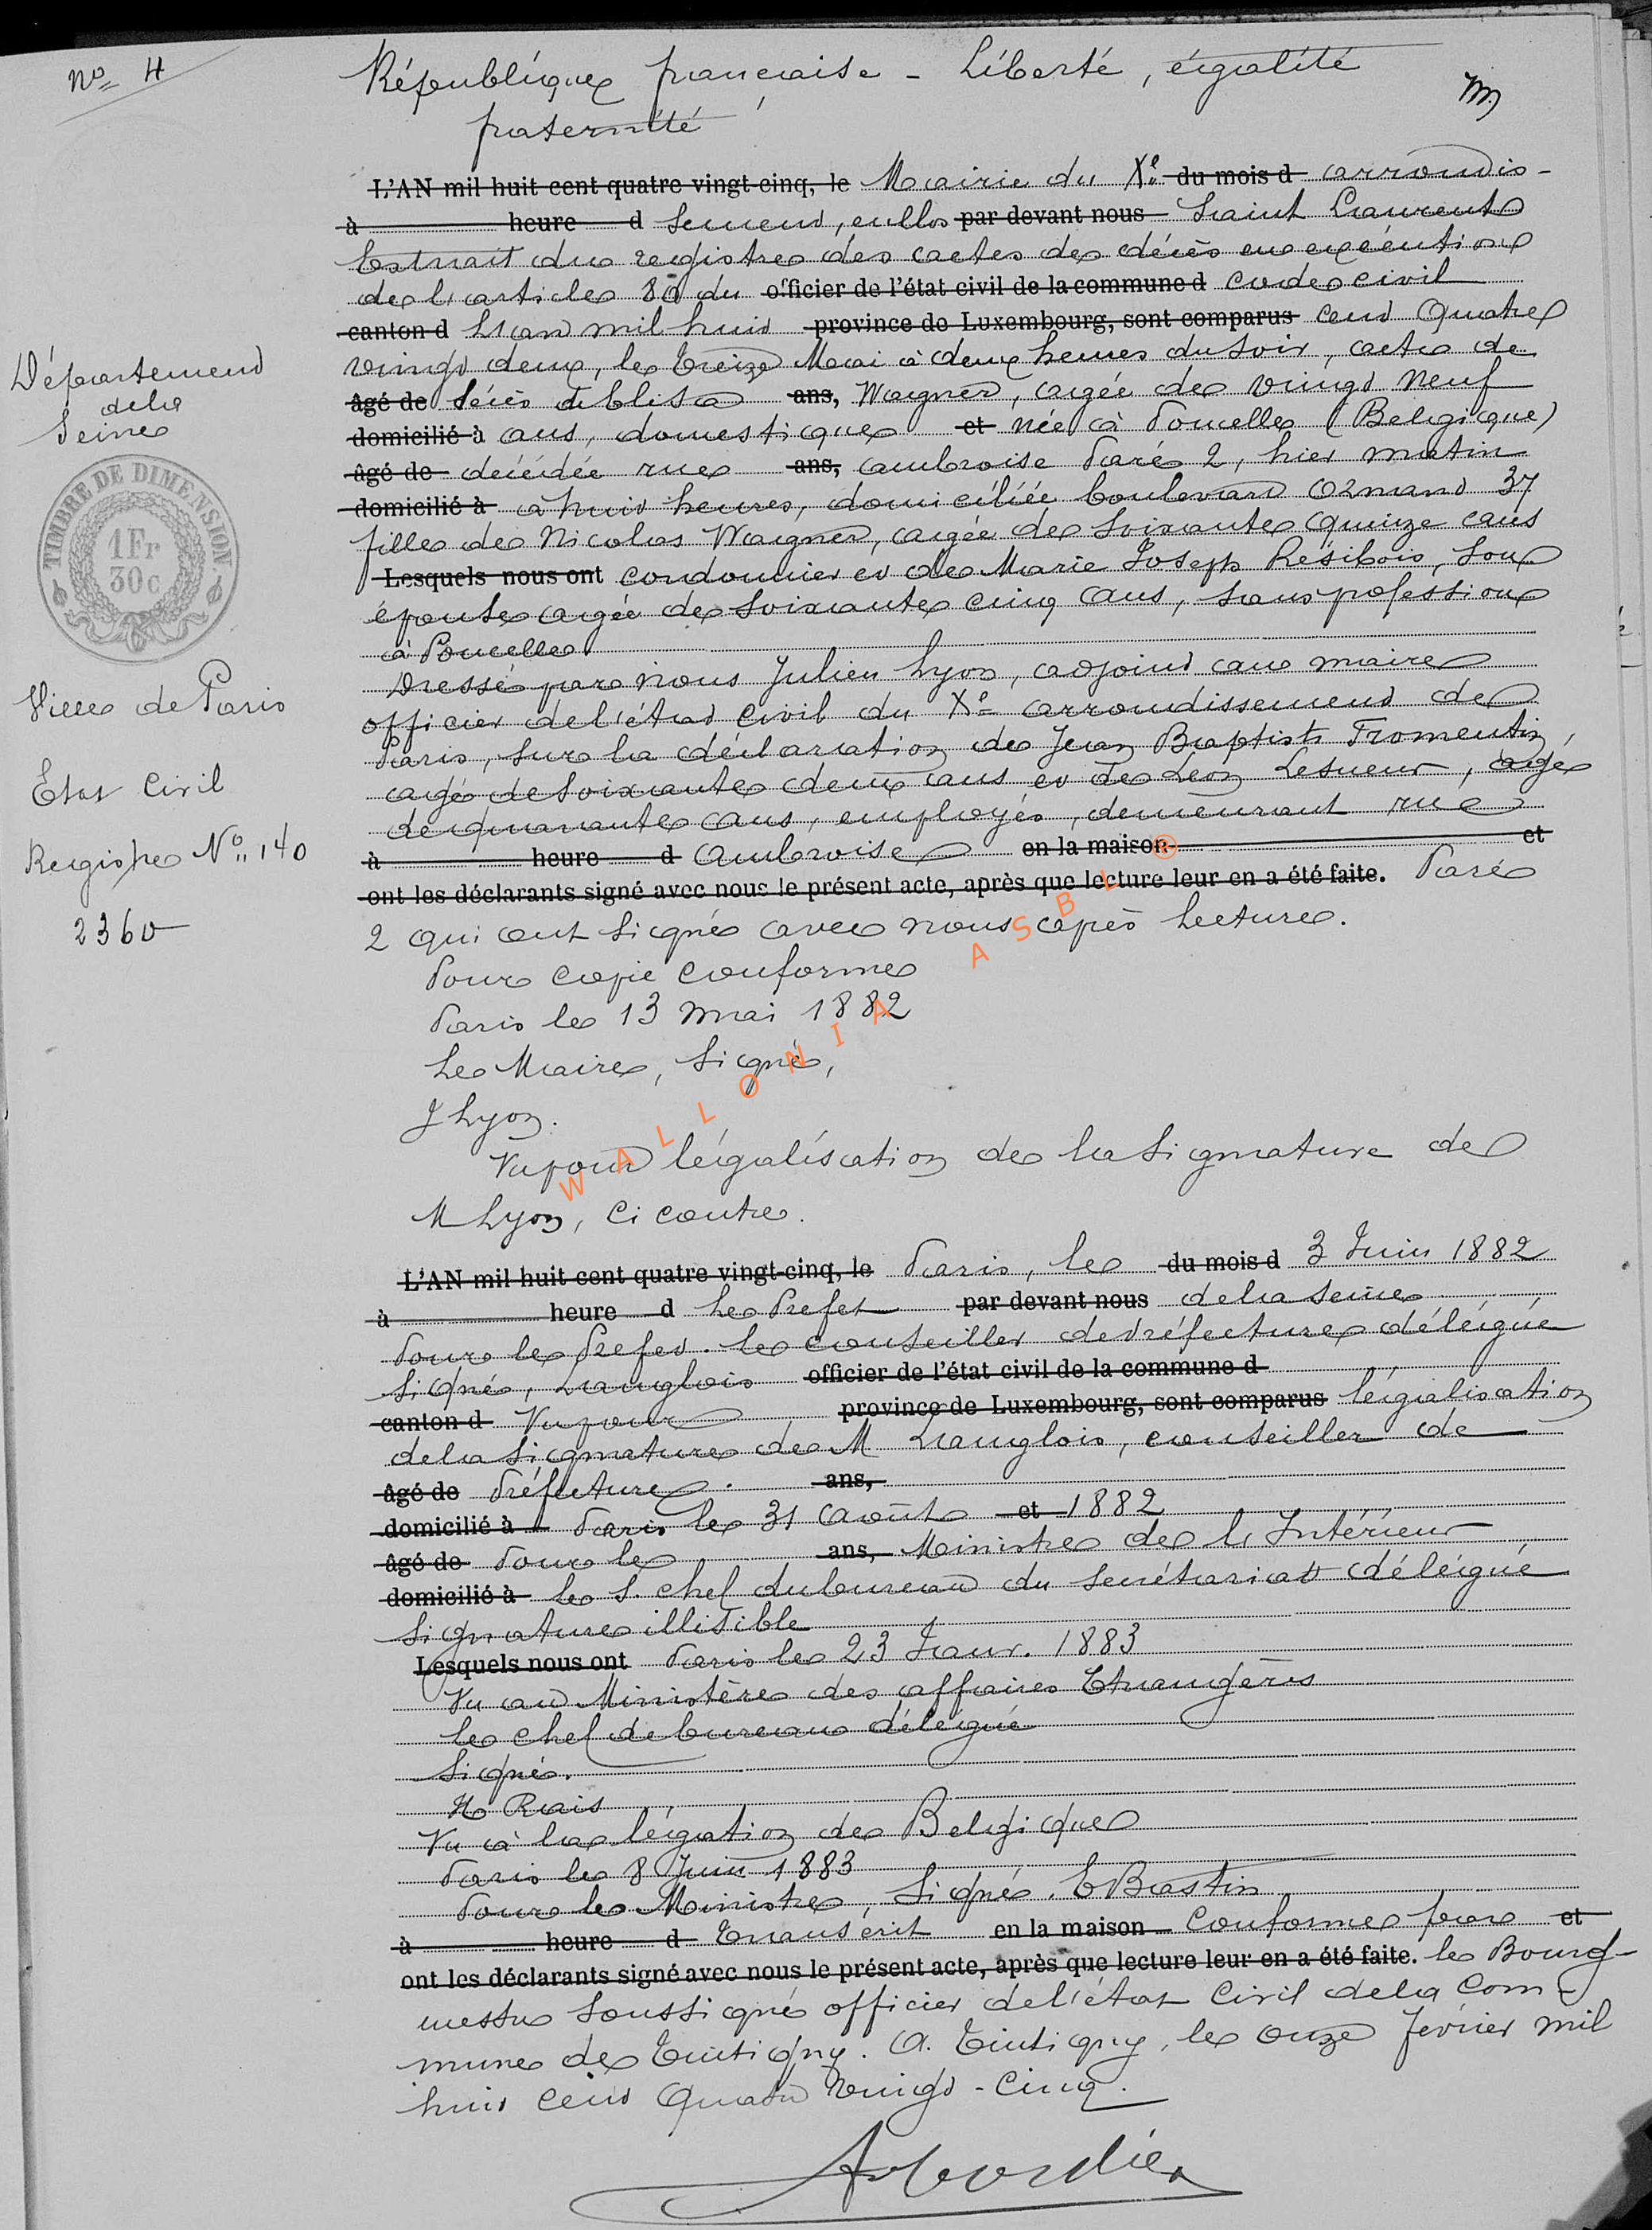 No 4
République française - Liberté, égalité
fraternité
L'AN mil huit cent quatre-vingt-cinq, le Mairie du Xe du mois d arrondis-
à heure d sement, enclos par devant nous Saint Laurent
Extrait du registre des actes de décès en exécution
de l'article 80 du officier de l'état civil de la commune d code civil
canton d L'an mil huit province de Luxembourg, sont comparus cent quatre
vingt deux, le treize Mai à deux heures du soir, acte de
âgé de décès de Elisa ans, Wagner, agée de vingt neuf
domicilié à ans, domestique et née à Poncelle (Belgique)
âgé de décédée rue ans, ambroise Paré 2, hier matin
domicilié à à huit heures, domiciliée boulevard Ornano 37
fille de Nicolas Wagner, agée de soixante quinze ans
Lesquels nous ont cordonnier et de Marie Joseph Résibois, son
épouse agée de soixante cinq ans, sans profession
à Poncelle
Dressé par nous Julien Lyon, adjoint au maire
officier de l'état civil du Xe arrondissement de
Paris, sur la déclaration de Jean Baptiste Fromentin,
agé de soixante deux ans et de Léon Lesueur, agé
de quarante ans, employés, demeurant rue
à heure d Ambroise en la maison et
ont les déclarants signé avec nous le présent acte, après que lecture leur en a été faite. Paré
2 qui ont signé avec nous après lecture.
Pour copie conforme
Paris le 13 mai 1882
Le Maire, signé,
J Lyon.
Vu pour légalisation de la signature de
M Lyon, ci contre.
L'AN mil huit cent quatre-vingt-cinq, le Paris, le du mois d 3 Juin 1882
à heure d Le Prefet par devant nous de la seine
Pour le Prefet. le conseiller de Préfecture délégué
signé, Langlois officier de l'état civil de la commune d
canton d Vu pour province de Luxembourg, sont comparus légalisation
de la signature de M Langlois, conseiller de
âgé de Préfecture. ans,
domicilié à Paris le 31 août et 1882
âgé de Pour le ans, Ministre de l'Intérieur
domicilié à le s. chef du bureau du secrétariat délégué
signature illisible
Lesquels nous ont Paris le 23 Janv. 1883
Vu au Ministère des affaires Etrangères
le chef de bureau délégué
signé.
Rais
Vu à la légation de Belgique
Paris le 8 Juin 1883
Pour le Ministre, signé. E Bastin
à heure d Transcrit en la maison conforme par et
ont les déclarants signé avec nous le présent acte, après que lecture leur en a été faite. le Bourg-
mestre soussigné officier de l'état civil de la com-
mune de Tintigny. A. Tintigny, le onze février mil
huit cent quatre vingt-cinq.
Département
de la
Seine
TIMBRE DE DIMENSION
1Fr
30c
Ville de Paris
Etat Civil
Registre No 140
2360
WALLONIA ASBL ®